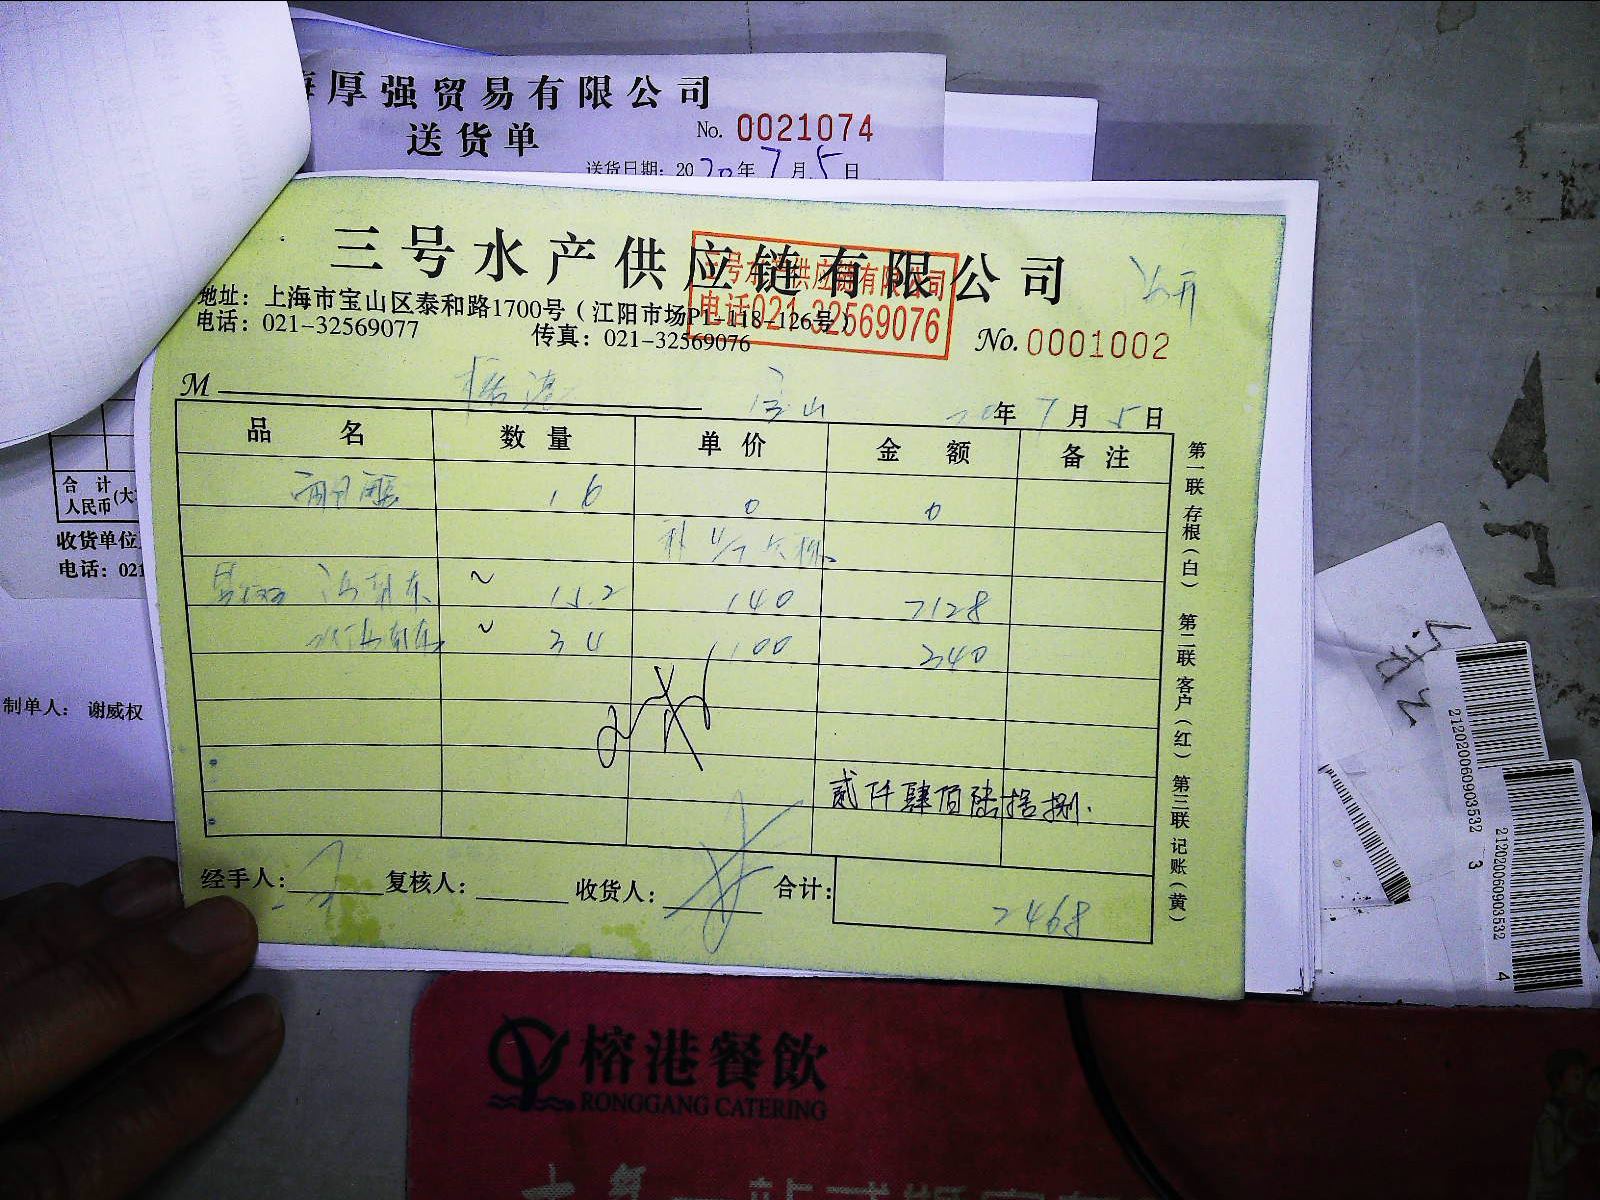 厚强贸易有限公司
送货单
No. 0021074
送货日期：2020年7月5日
三号水产供应链有限公司
三号水产供应链有限公司
电话021-32569076
地址：上海市宝山区泰和路1700号（江阳市场P1-118-126号）
电话：021-32569077 传真：021-32569076
No. 0001002
M 榕港 宝山 20年7月5日
品名 数量 单价 金额 备注
16 0 0
15.2 140 2128
3.4 100 340
贰仟肆佰陆拾捌
经手人： 复核人： 收货人： 合计： 2468
第一联存根（白） 第二联客户（红） 第三联记账（黄）
合计
人民币（大
收货单位
电话：021
制单人：谢威权
2120206090353２ 3
21202060903532 4
榕港餐飲
RONGGANG CATERING